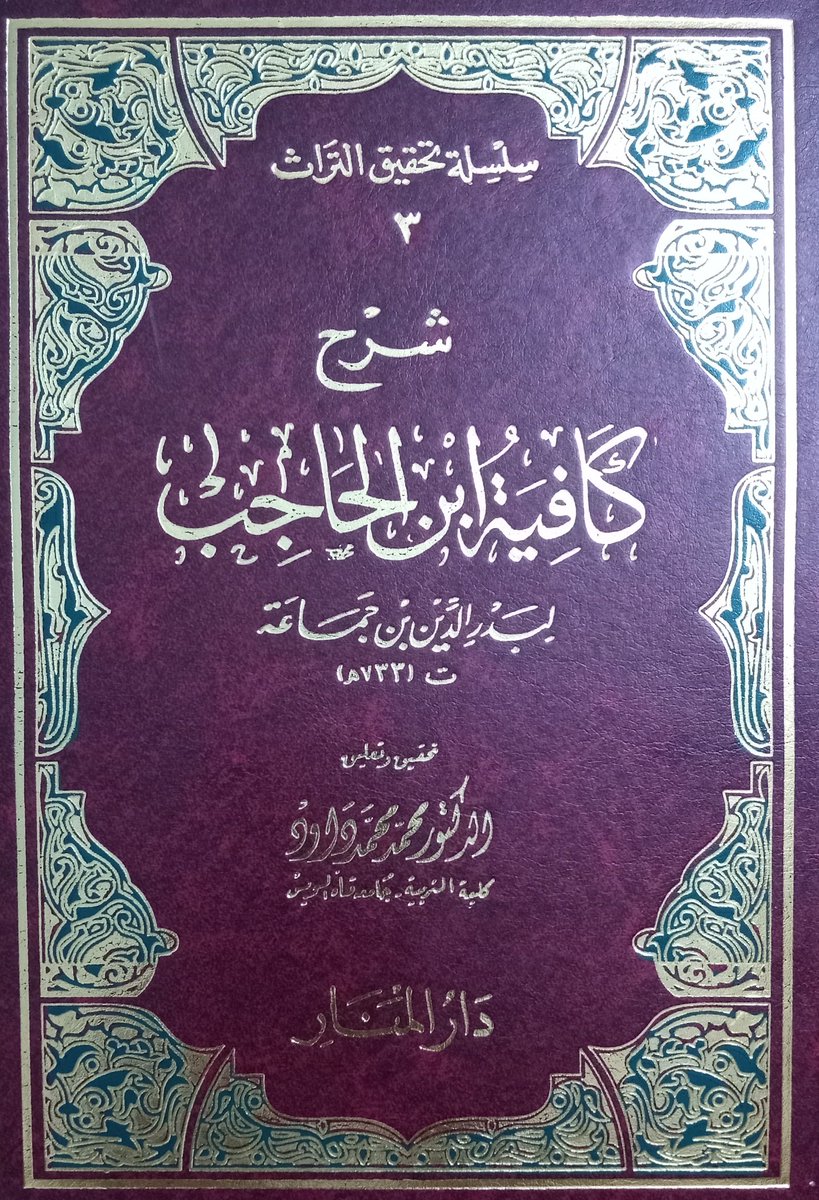 سِلْسِلة تحقيق التراث
٣
شرْح
كَافِيَةُ ابْنِ الحَاجِبِ
لبَدْرِ الدِّيْن بْن جَمَاعَة
ت (٧٣٣هـ)
تحقيق وتعليق
الدكتور محمّد محمَّد دَاود
كلية التربية - جامعة قناة السويس
دَارُ المَنَار